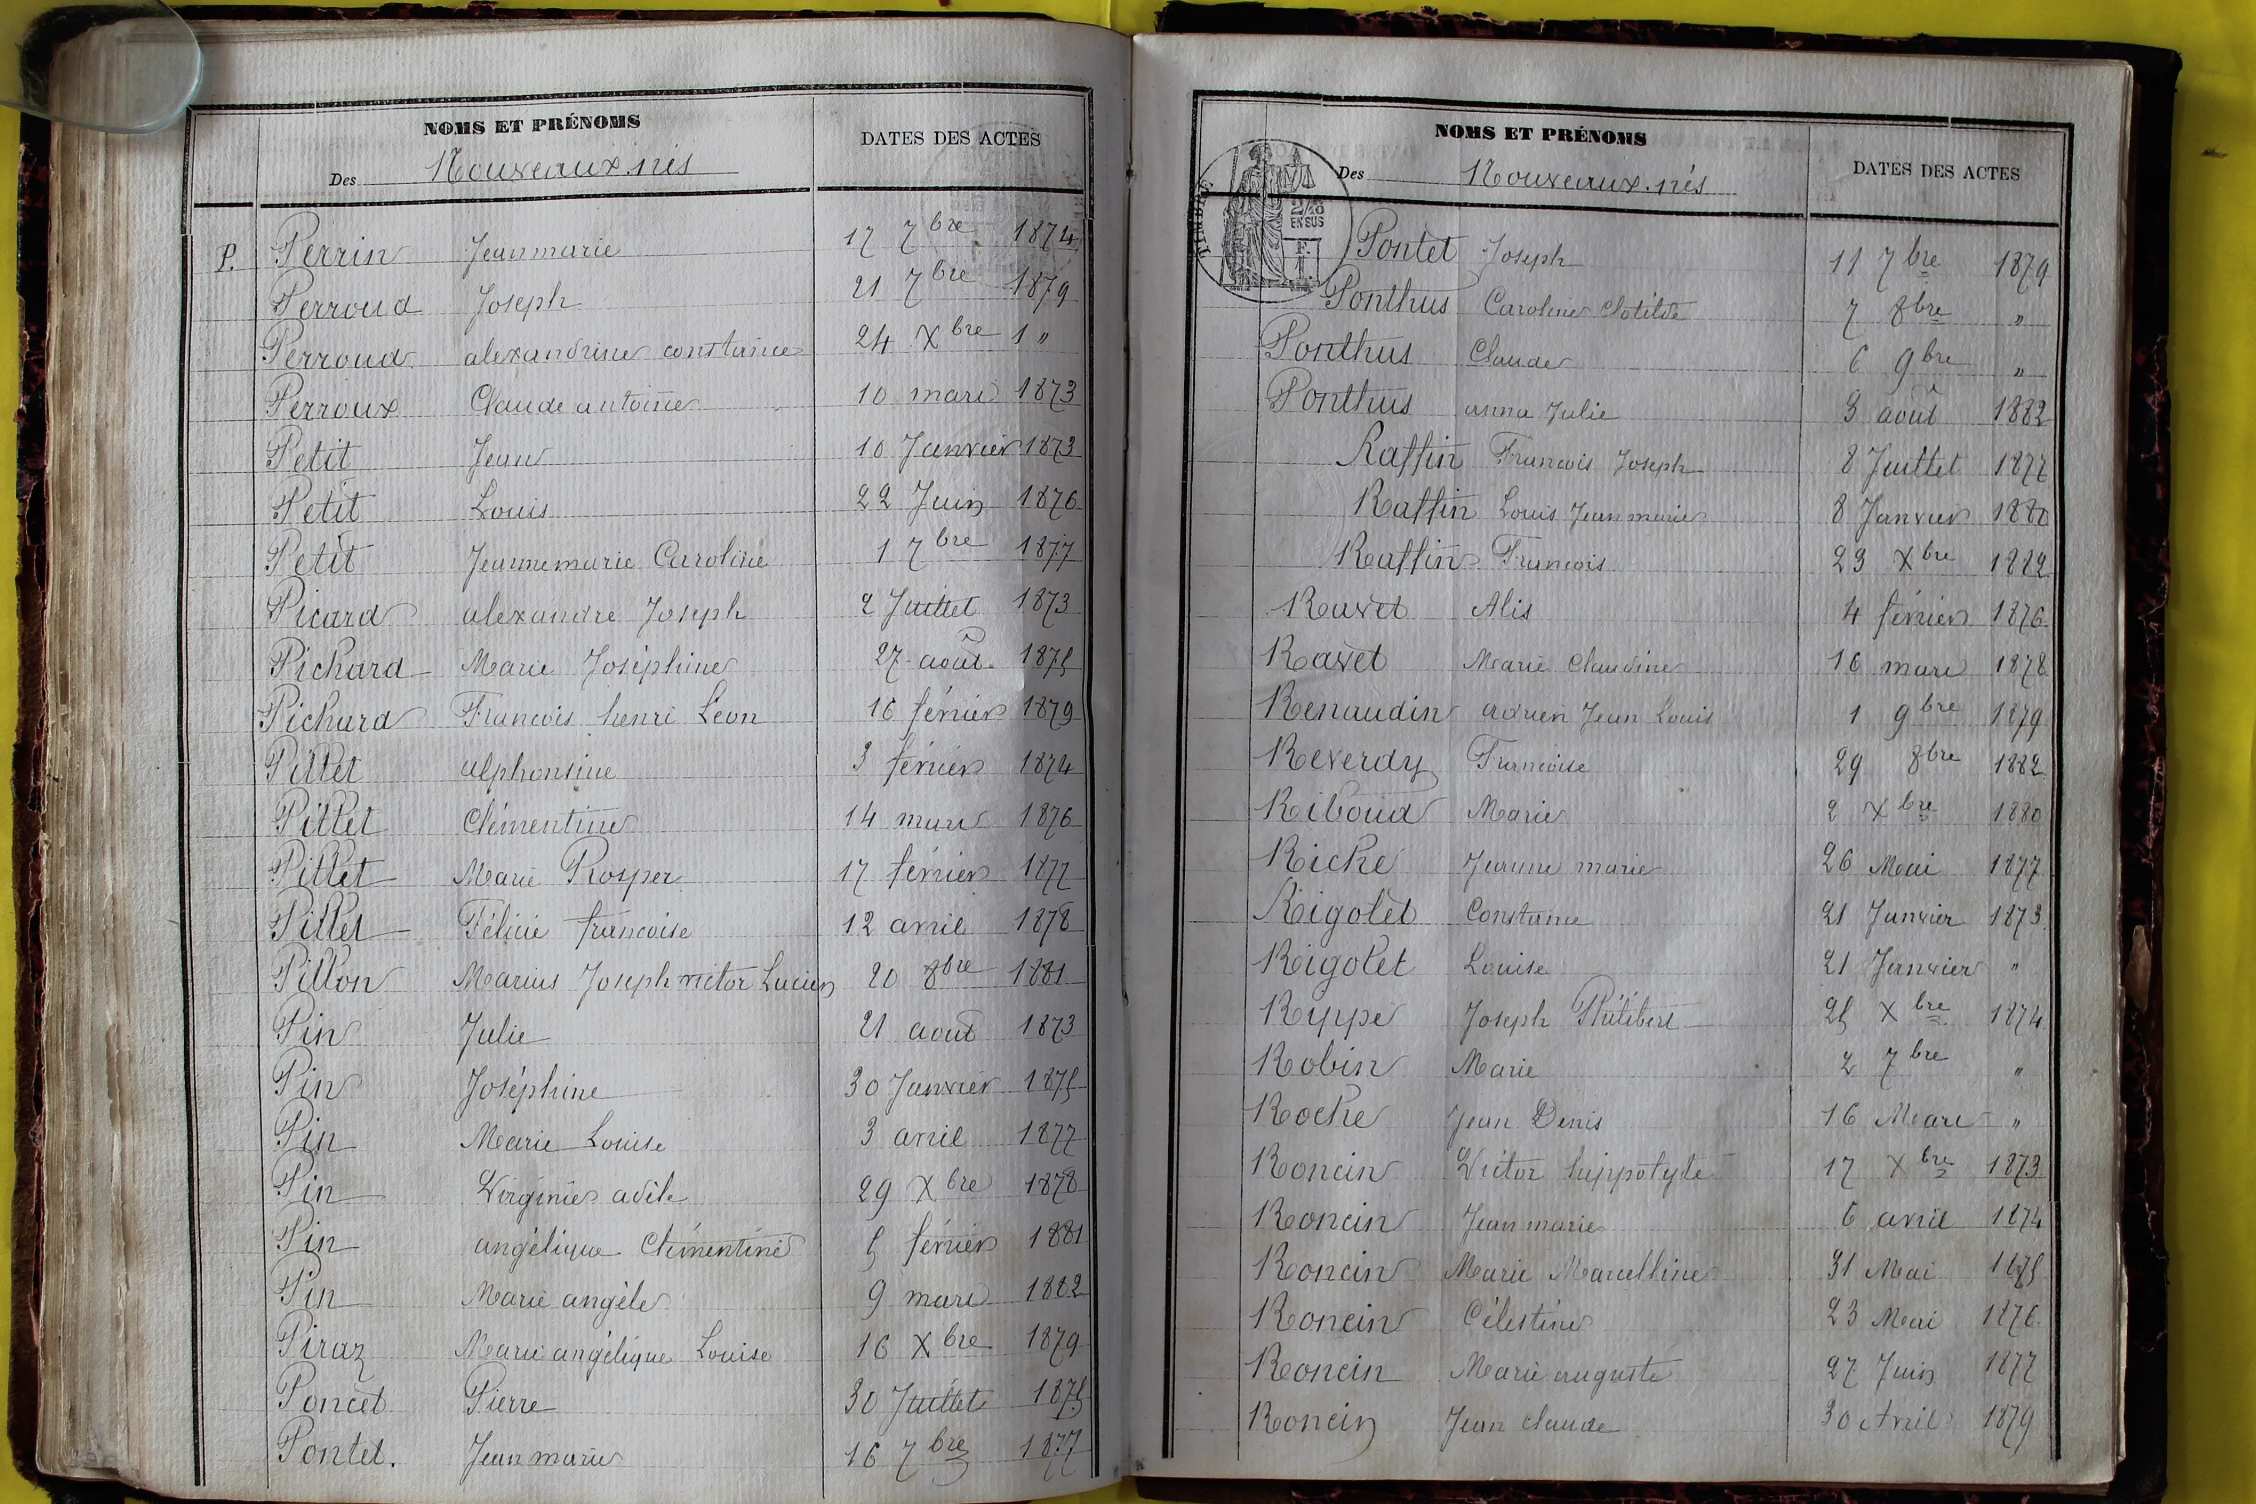 NOMS ET PRÉNOMS
DATES DES ACTES
Des Nouveaux nés
P. Perrin Jean marie 17 7bre 1874
Perroud Joseph 21 7bre 1879
Perroud alexandrine constance 24 Xbre 1 "
Perroux Claude antoine 10 mars 1873
Petit Jean 10 Janvier 1873
Petit Louis 22 Juin 1876
Petit Jeanne marie Caroline 1 7bre 1877
Picard alexandre Joseph 2 Juillet 1873
Pichard Marie Joséphine 27 août 1875
Pichard Francois henri Léon 16 février 1879
Pillet alphonsine 3 février 1874
Pillet Clémentine 14 mars 1876
Pillet Marie Prosper 17 février 1877
Pillet Félicie francoise 12 avril 1878
Pillon Marius Joseph victor Lucien 20 8bre 1881
Pin Julie 21 aout 1873
Pin Joséphine 30 Janvier 1875
Pin Marie Louise 3 avril 1877
Pin Virginie adèle 29 Xbre 1878
Pin angélique Clémentine 5 février 1881
Pin Marie angèle 9 mars 1882
Piraz Marie angélique Louise 16 Xbre 1879
Poncet Pierre 30 Juillet 1875
Pontet. Jean marie 16 7bre 1877
NOMS ET PRÉNOMS
DATES DES ACTES
Des Nouveaux nés
2/10
EN SUS
F.
1.
Pontet Joseph 11 7bre 1879
Ponthus Caroline Clotilde 7 8bre "
Ponthus Claude 6 9bre "
Ponthus anna Julie 3 août 1882
Raffin Francois Joseph 8 Juillet 1877
Raffin Louis Jean marie 8 Janvier 1880
Raffin Francois 23 Xbre 1882
Ravet Alis 4 février 1876
Ravet Marie Claudine 16 mars 1878
Renaudin adrien Jean Louis 1 9bre 1879
Reverdy Francoise 29 8bre 1882
Riboud Marie 2 Xbre 1880
Riche Jeanne marie 26 Mai 1877
Rigolet Constance 21 Janvier 1873
Rigolet Louise 21 Janvier "
Rippe Joseph Philibert 25 Xbre 1874
Robin Marie 2 7bre "
Roche Jean Denis 16 Mars "
Roncin Victor hippolyte 17 Xbre 1873
Roncin Jean marie 6 avril 1874
Roncin Marie Marcelline 31 Mai 1875
Roncin Célestine 23 Mai 1876
Roncin Marie auguste 27 Juin 1877
Roncin Jean claude 30 Avril 1879